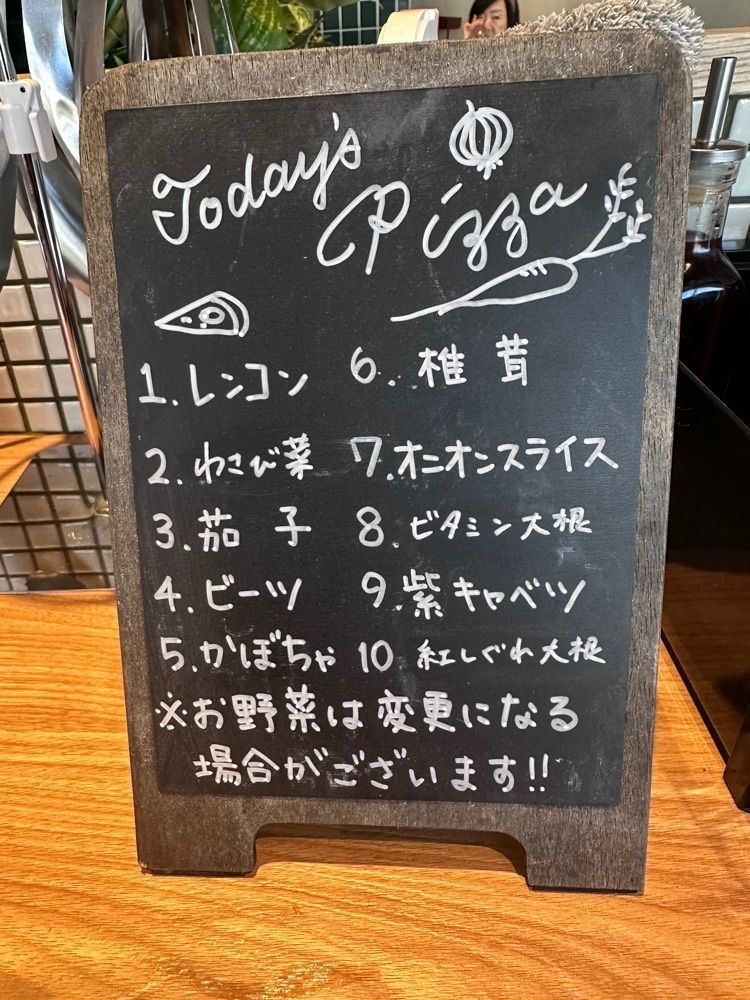 Today's
Pizza
1. レンコン
2. わさび菜
3. 茄子
4. ビーツ
5. かぼちゃ
6. 椎茸
7. オニオンスライス
8. ビタミン大根
9. 紫キャベツ
10 紅しぐれ大根
※お野菜は変更になる
場合がございます!!